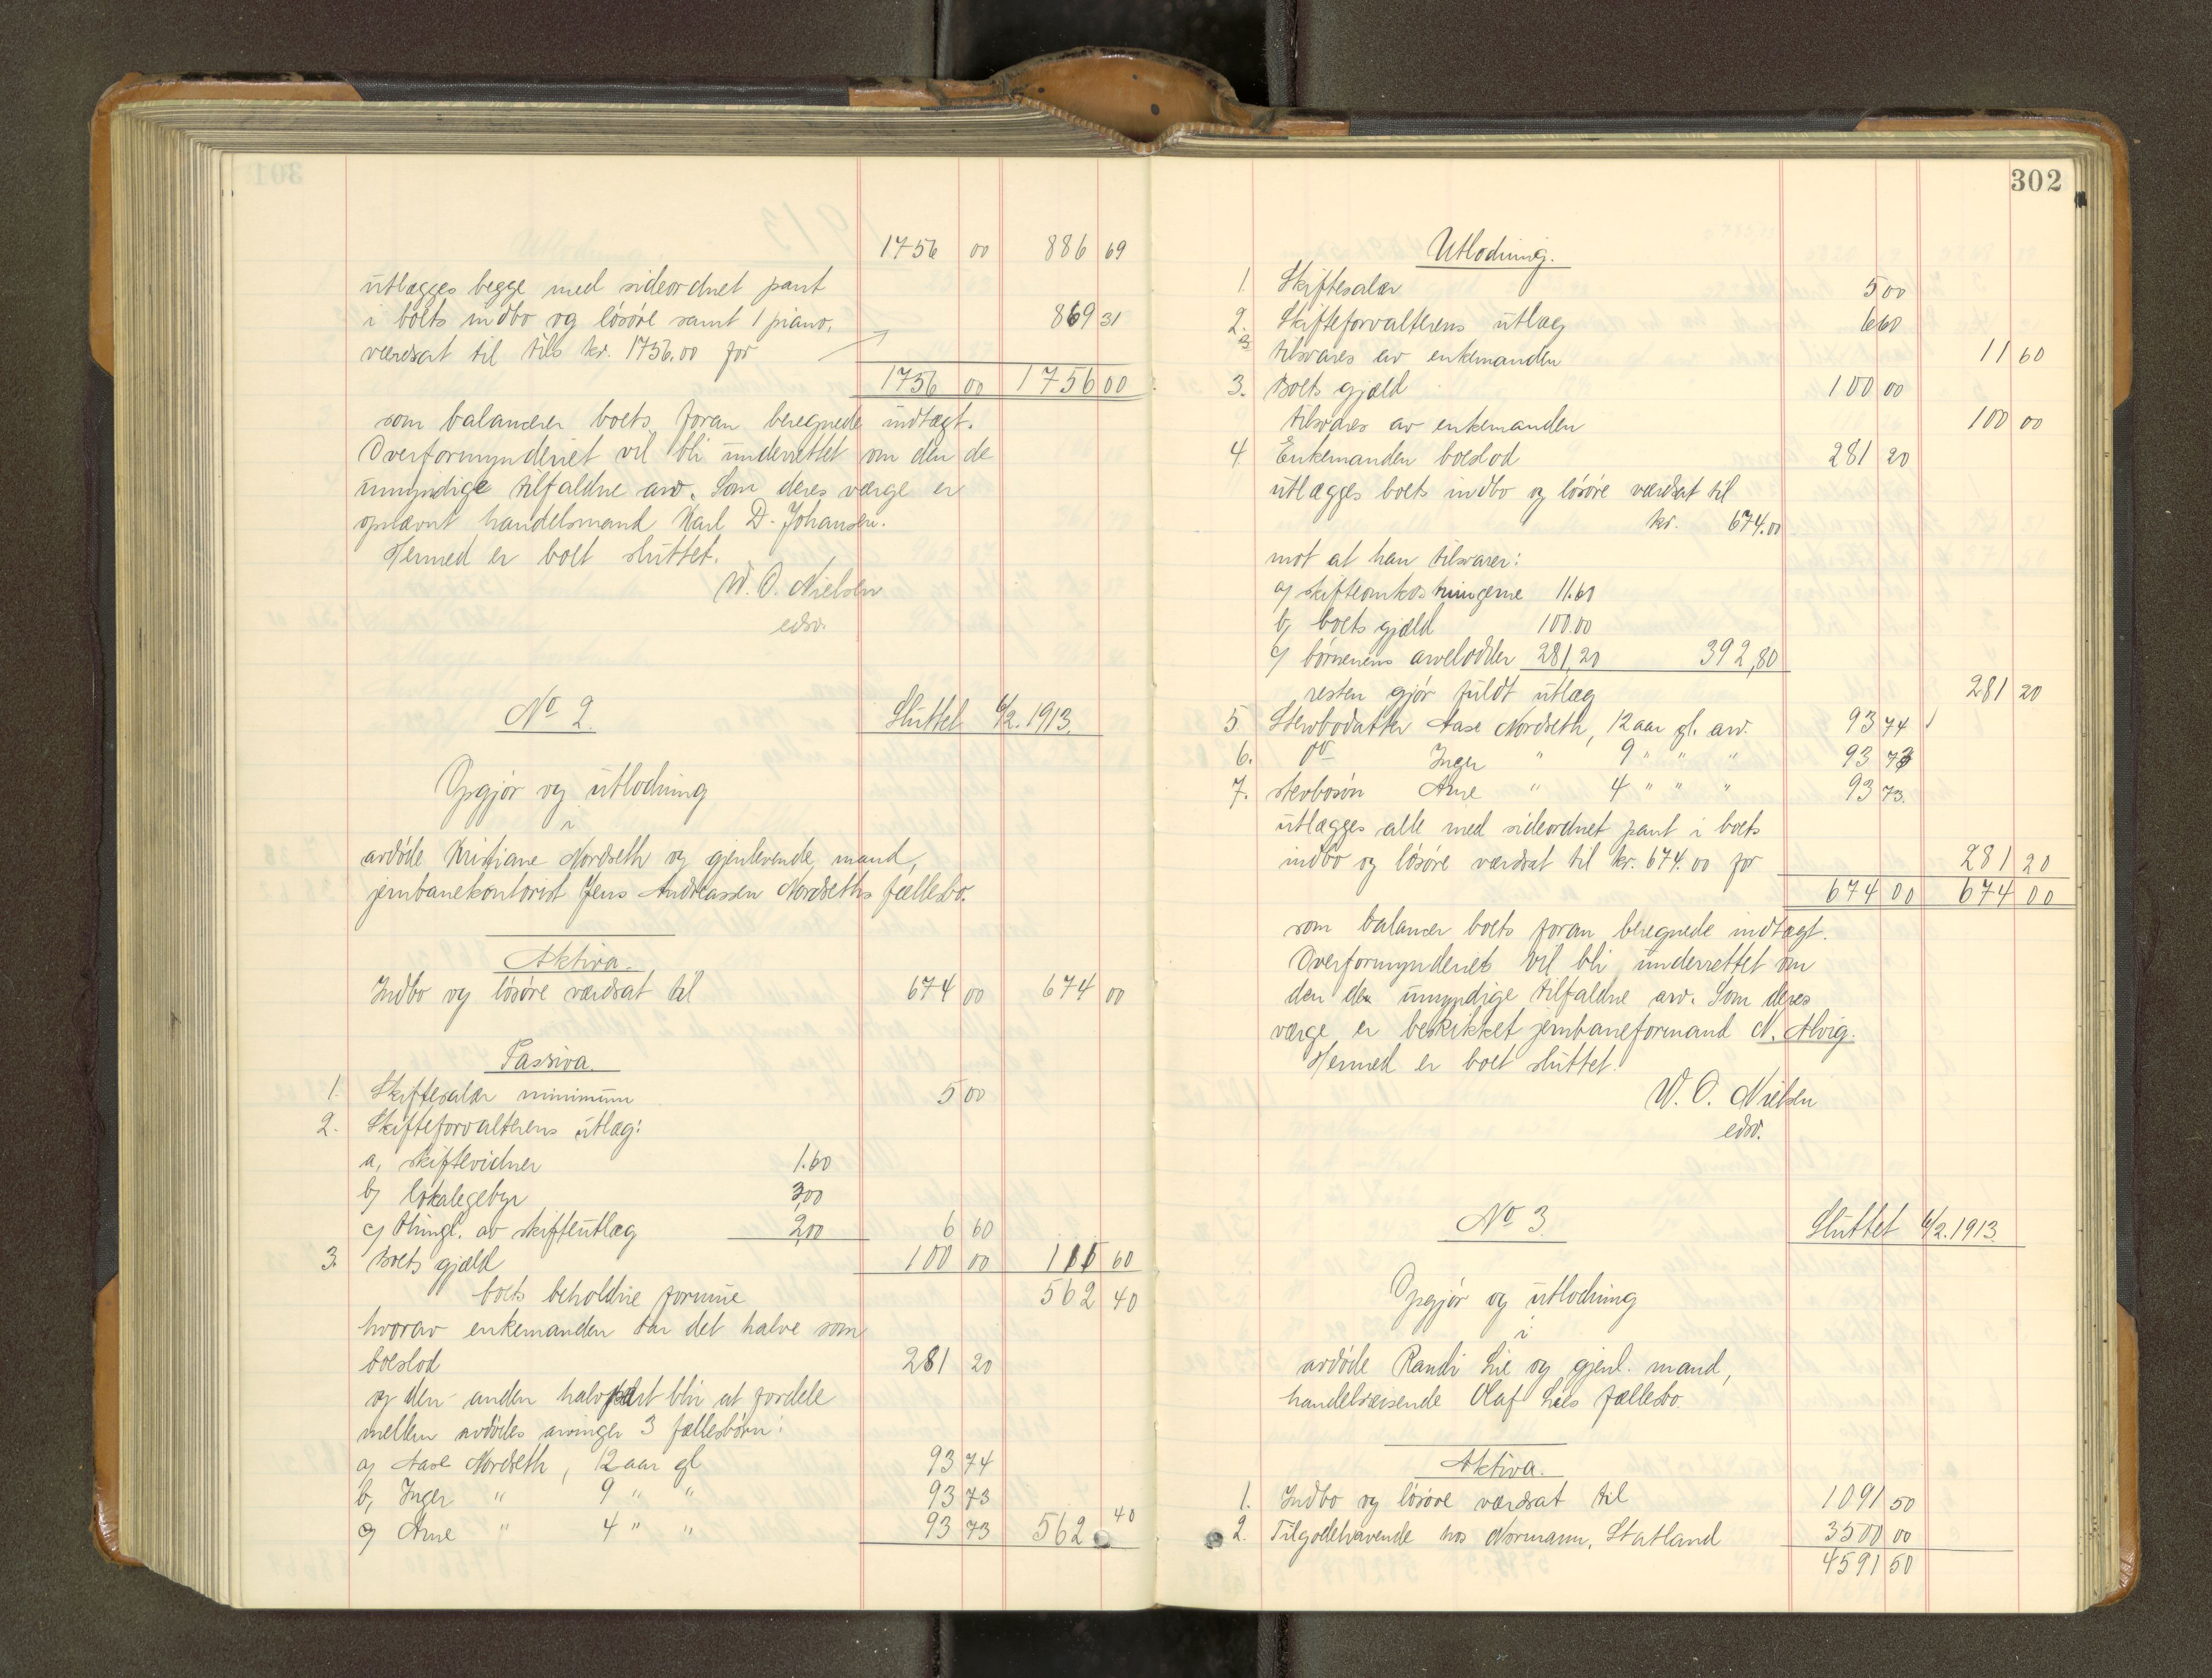 1756 00 886 69
utlægges begge med sideordnet pant
i boets indbo og løsøre samt 1 piano, 869 31
værdsat til tils kr. 1756.00 for
1756 00 1756 00
som balancerer boets foran beregnede indtægt.
Overformynderiet vil bli underrettet om den de
umyndige tilfaldne arv. Som deres værge er
opnævnt handelsmand Karl D. Johansen.
Hermed er boet sluttet.
W. O. Nielsen
edsv.
No 2. Sluttet 6/2. 1913.
Opgjør og utlodning
i
avdøde Kristiane Nordseth og gjenlevende mand,
jernbanekontorist Jens Andreassen Nordseths fællesbo.
Aktiva.
Indbo og løsøre værdsat til 674 00 674 00
Passiva.
1. Skiftesalær minimum 5 00
2. Skifteforvalterens utlæg:
a, skiftevidner 1.60
b, lokalegebyr 3,00
c, thingl. av skifteutlæg 2,00 6 60
3. Boets gjæld 100 00 111 60
boets beholdne formue 562 40
hvorav enkemanden tar det halve som
boeslod 281 20
og den anden halvpart blir at fordele
mellem avdødes arvinger 3 fællesbørn:
a, Aase Nordseth, 12 aar gl 93 74
b, Inger " 9 " " 93 73
c, Arne " 4 " " 93 73 562 40
302
Utlodning.
1. Skiftesalær 5 00
2. Skifteforvalterens utlæg 6 60
tilsvares av enkemanden 11 60
3. Boets gjæld 100 00
tilsvares av enkemanden 100 00
4. Enkemanden boeslod 281 20
utlægges boets indbo og løsøre værdsat til
kr. 674.00
mot at han tilsvarer:
a, skifteomkostningerne 11.60
b, boets gjæld 100.00
c, børnenes arvelodder 281,20 392,80
resten gjør fuldt utlæg 281 20
5. Stervbodatter Aase Nordseth, 12 aar gl. arv. 93 74
6. do Inger " 9 " " " 93 73
7. stervbosøn Arne " 4 " " " 93 73.
utlægges alle med sideordnet pant i boets
indbo og løsøre værdsat til kr. 674.00 for 281 20
674 00 674 00
som balancer boets foran beregnede indtægt.
Overformynderiet vil bli underrettet om
den de umyndige tilfaldne arv. Som deres
værge er beskikket jernbaneformand N. Alvig.
Hermed er boet sluttet.
W. O. Nielsen
edsv.
No 3. Sluttet 6/2. 1913.
Opgjør og utlodning
i
avdøde Randi Lie og gjenl. mand,
handelsreisende Olaf Lies fællesbo.
Aktiva.
1. Indbo og løsøre værdsat til 1091 50
2. Tilgodehavende hos Normann, Statland 3500 00
4591 50